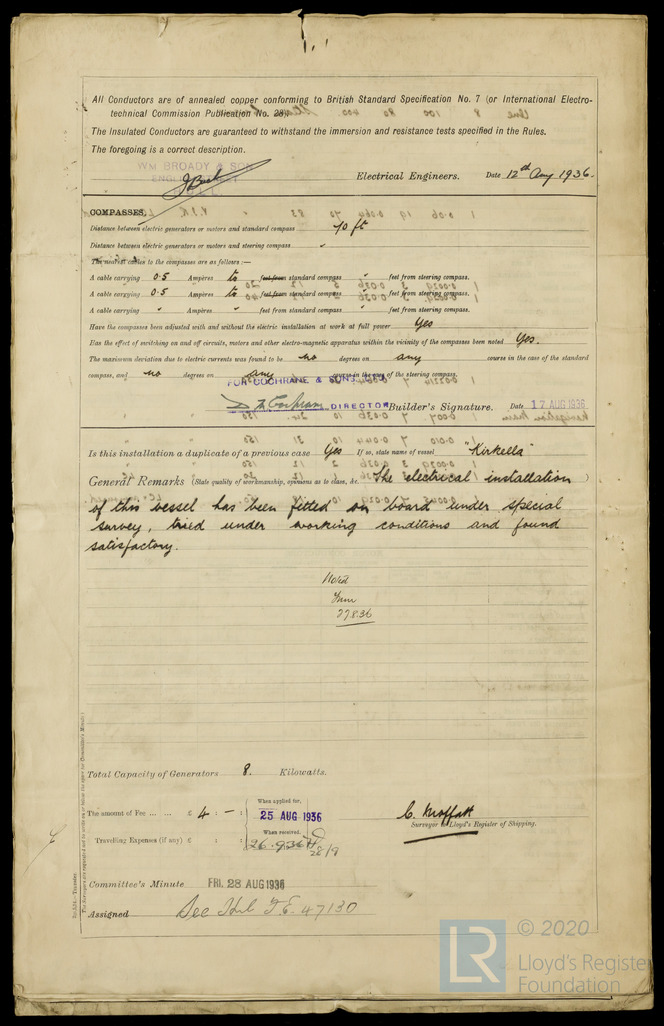 All Conductors are of annealed copper conforming to British Standard Specification No. 7 (or International Electro-
technical Commission Publication No. 28).
The Insulated Conductors are guaranteed to withstand the immersion and resistance tests specified in the Rules.
The foregoing is a correct description.
WM BROADY & SON
Electrical Engineers. Date 12th Aug 1936.
COMPASSES.
Distance between electric generators or motors and standard compass 70 ft
Distance between electric generators or motors and steering compass "
The nearest cables to the compasses are as follows:—
A cable carrying 0.5 Ampères to feet from standard compass " feet from steering compass.
A cable carrying 0.5 Ampères to feet from standard compass " feet from steering compass.
A cable carrying " Ampères " feet from standard compass " feet from steering compass.
Have the compasses been adjusted with and without the electric installation at work at full power Yes
Has the effect of switching on and off circuits, motors and other electro-magnetic apparatus within the vicinity of the compasses been noted Yes.
The maximum deviation due to electric currents was found to be no degrees on any course in the case of the standard
compass, and no degrees on any course in the case of the steering compass.
FOR COCHRANE & SONS
DIRECTOR Builder's Signature. Date 17 AUG 1936
Is this installation a duplicate of a previous case Yes If so, state name of vessel "Kirkella"
General Remarks (State quality of workmanship, opinions as to class, &c. The electrical installation )
of this vessel has been fitted on board under special
survey, tried under working conditions and found
satisfactory.
Noted
27.8.36
Total Capacity of Generators 8. Kilowatts.
The amount of Fee ... ... £ 4 : — :
When applied for,
25 AUG 1936
When received,
Travelling Expenses (if any) £ : : 26.9.36
28/9
C. Moffatt
Surveyor to Lloyd's Register of Shipping.
Committee's Minute FRI. 28 AUG 1936
Assigned See Hul F.E. 47130
LR © 2020
Lloyd's Register
Foundation